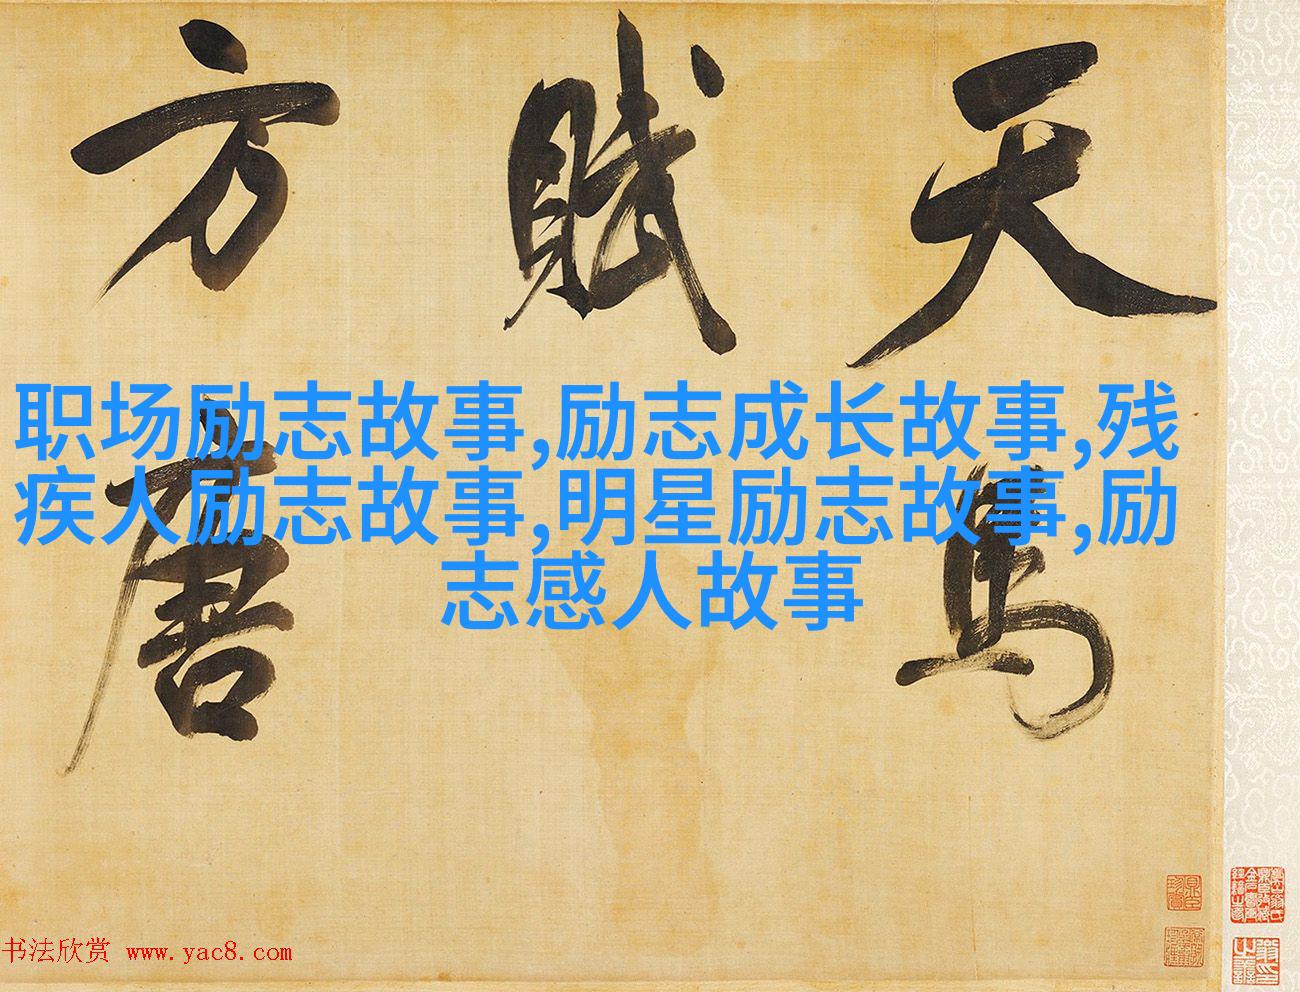 天馬
賦
方唐
职场励志故事,励志成长故事,残
疾人励志故事,明星励志故事,励
志感人故事
书法欣赏 www.yac8.com